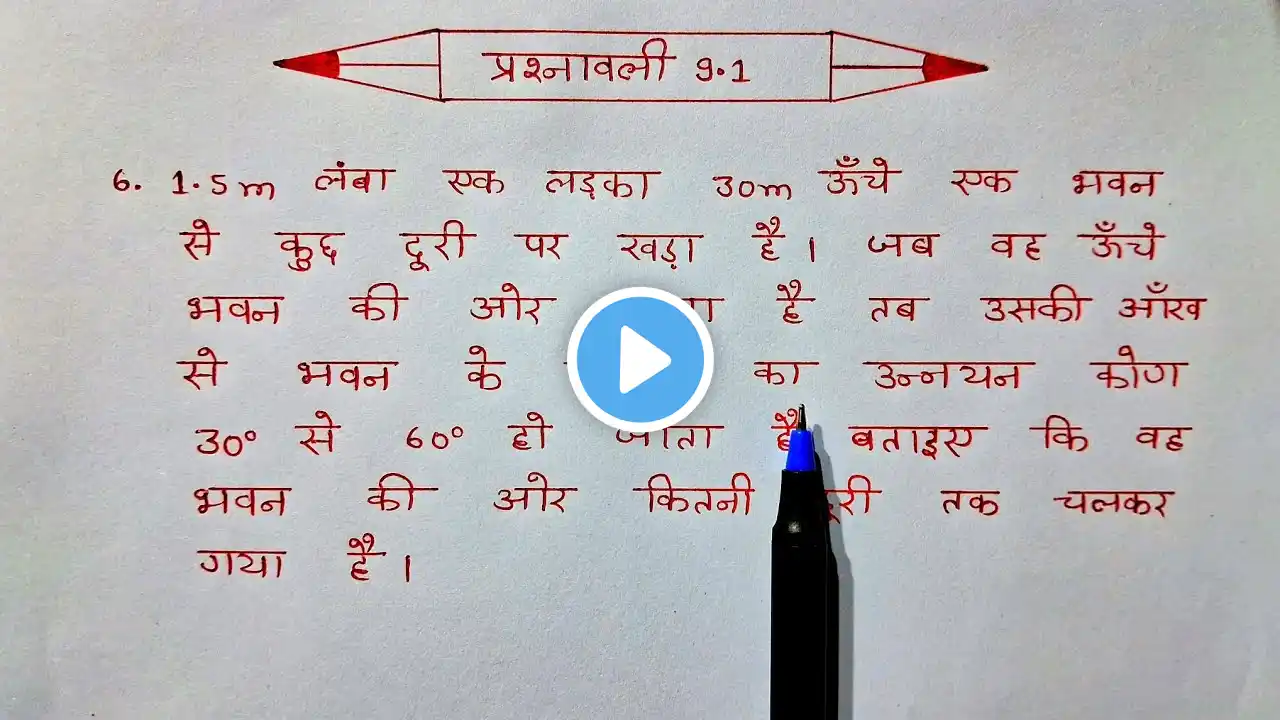 प्रश्नावली 9.1
6. 1.5m लंबा एक लड़का 30m ऊँचे एक भवन
से कुछ दूरी पर खड़ा है। जब वह ऊँचे
भवन की ओर है तब उसकी आँख
से भवन के का उन्नयन कोण
30° से 60° हो जाता है बताइए कि वह
भवन की ओर कितनी दूरी तक चलकर
गया है।